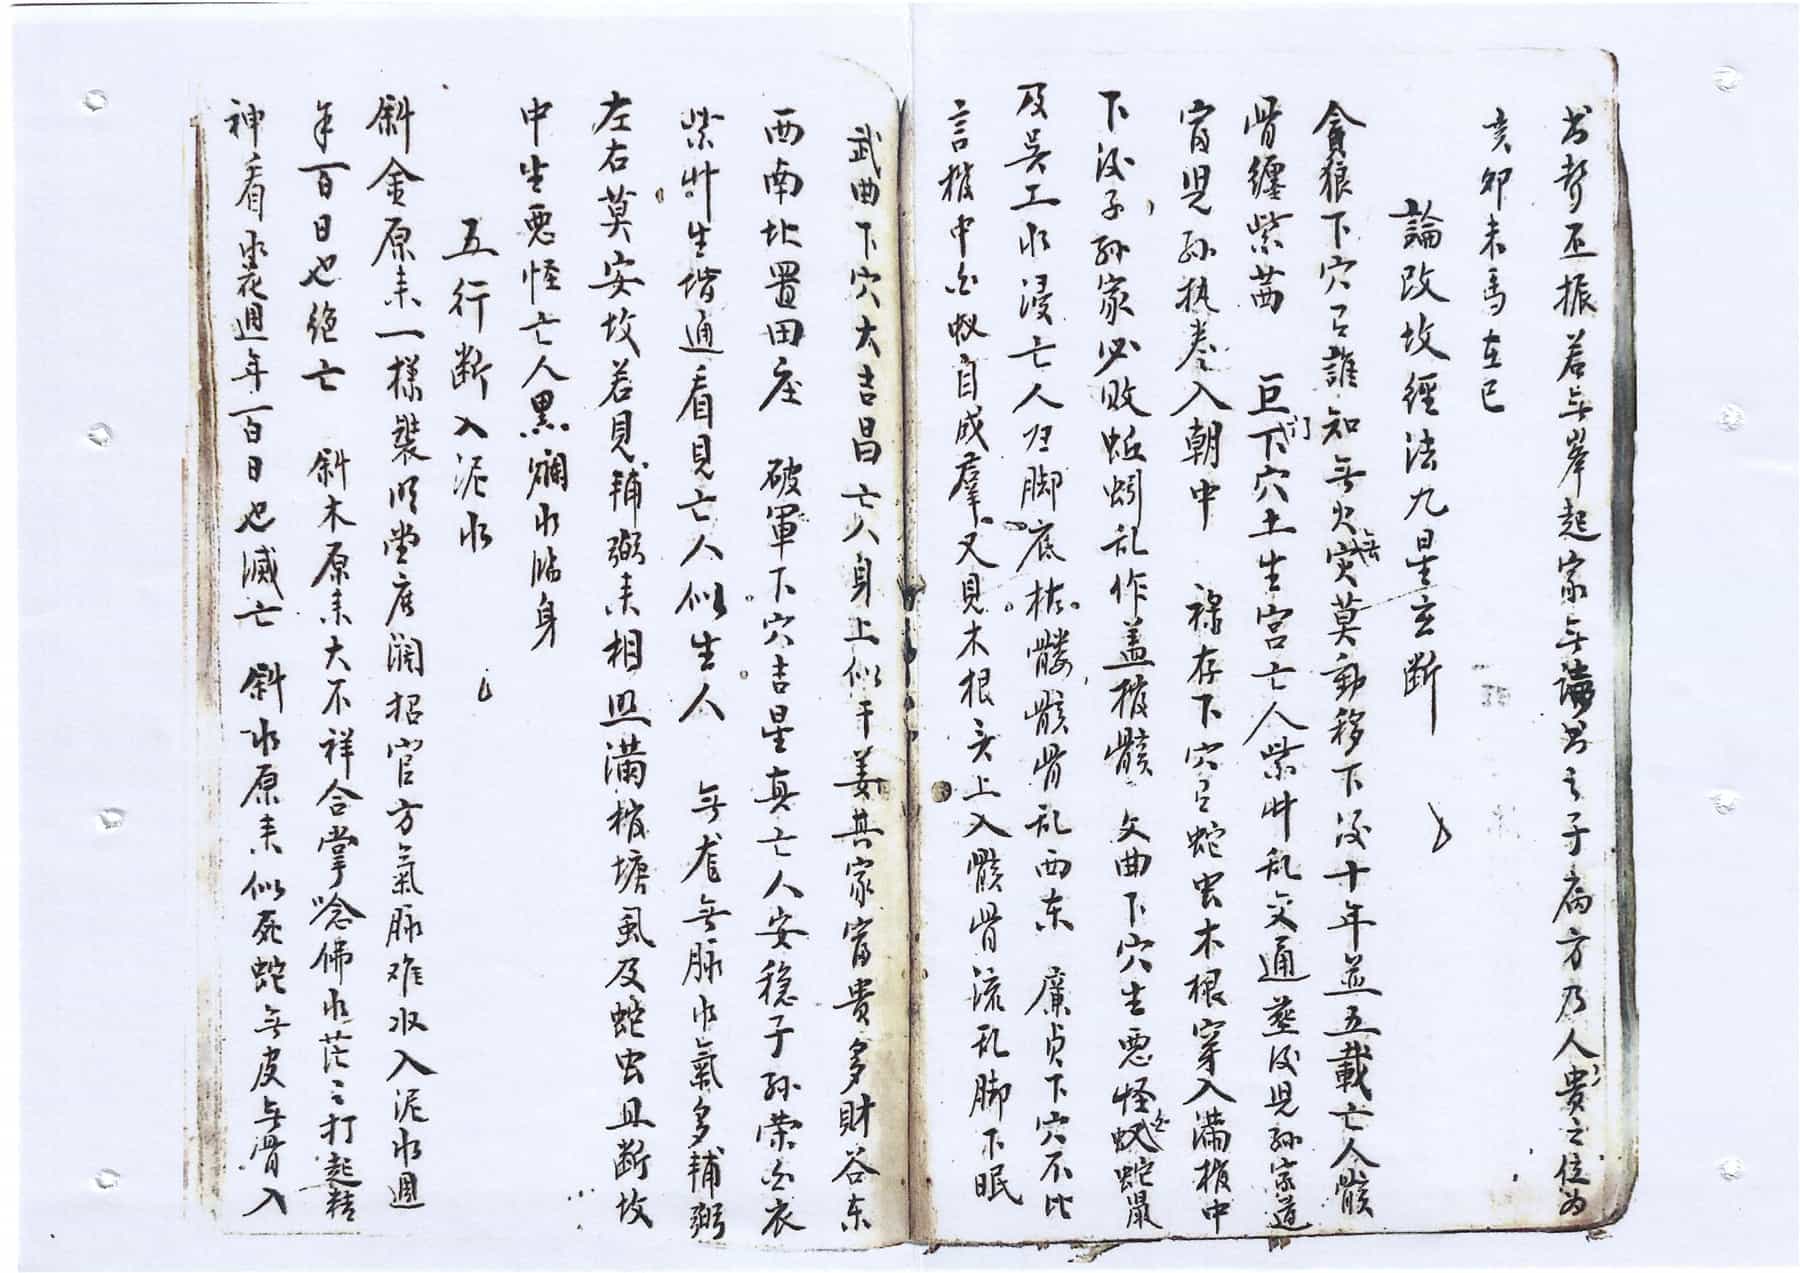 若無岸起家無論男之子病方乃人貴之位为
亥卯未馬在巳
論改坟經法九星立断
貪狼下穴召誰知無火無灾莫動移下後十年並五載亡人骸
骨纏紫茜 巨门下穴土生宫亡人紫艸乱交通塟後児孙宗道
官児孙执卷入朝中 禄存下穴召蛇虫木根穿入满棺中
下後子孙家必败蚯蚓乱作盖棺骸 文曲下穴生悪怪虫蚁蛇鼠
及吴工水浸亡人在脚底 髅骸骨乱西东 廉贞下穴不比
言棺中白蚁自成羣又見木根衣上入骸骨流乱脚下眠
武曲下穴大吉昌亡人身上似干姜其家富贵多財谷东
西南北置田庄 破軍下穴吉星真亡人安稳子孙荣白衣
紫艸生堦通看見亡人似生人 無龙無脉水氣多輔弼
左右莫安坟若見輔弼来相照满棺塘虱及蛇虫且断坟
中生悪怪亡人黒爛水临身
五行断入泥水
斜金原来一樣裝明堂店濶招官方氣脉难收入泥水週
年百日也絶亡 斜木原来大不祥合掌唸佛水茫々打起精
神看水花週年一百日也滅亡 斜水原来似死蛇無皮無骨入